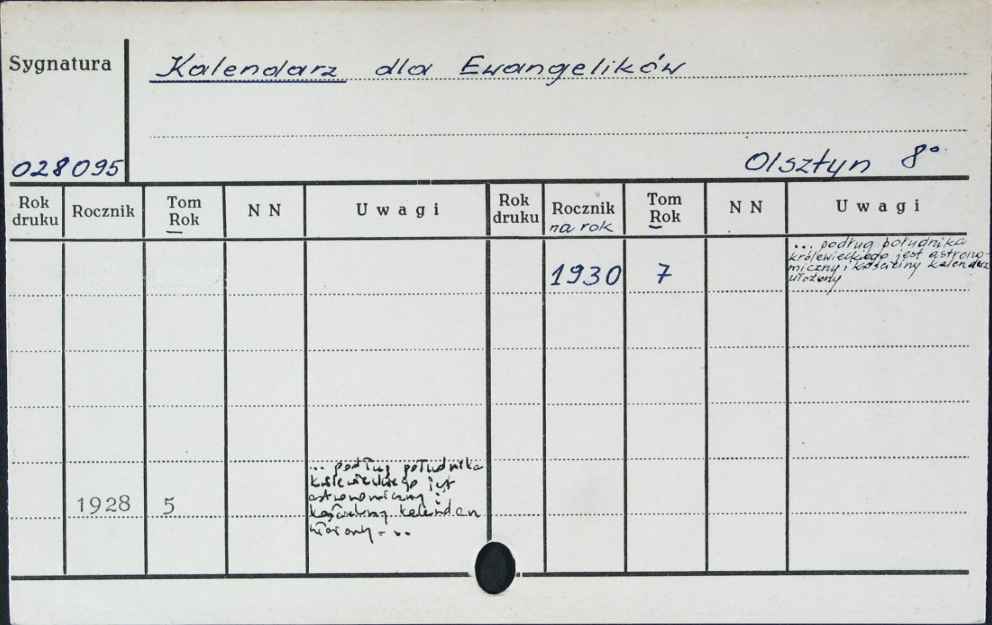 Sygnatura
Kalendarz dla Ewangelików
028095
Olsztyn 8°
Rok druku
Rocznik
Tom Rok
N N
Uwagi
Rok druku
Rocznik
na rok
Tom Rok
N N
Uwagi
1930
7
... podług południka
królewieckiego jest astrono-
miczny i kościelny kalendarz
ułożony
1928
5
... podług południka
królewieckiego jest
astronomiczny i
kościelny kalendarz
ułożony - ..